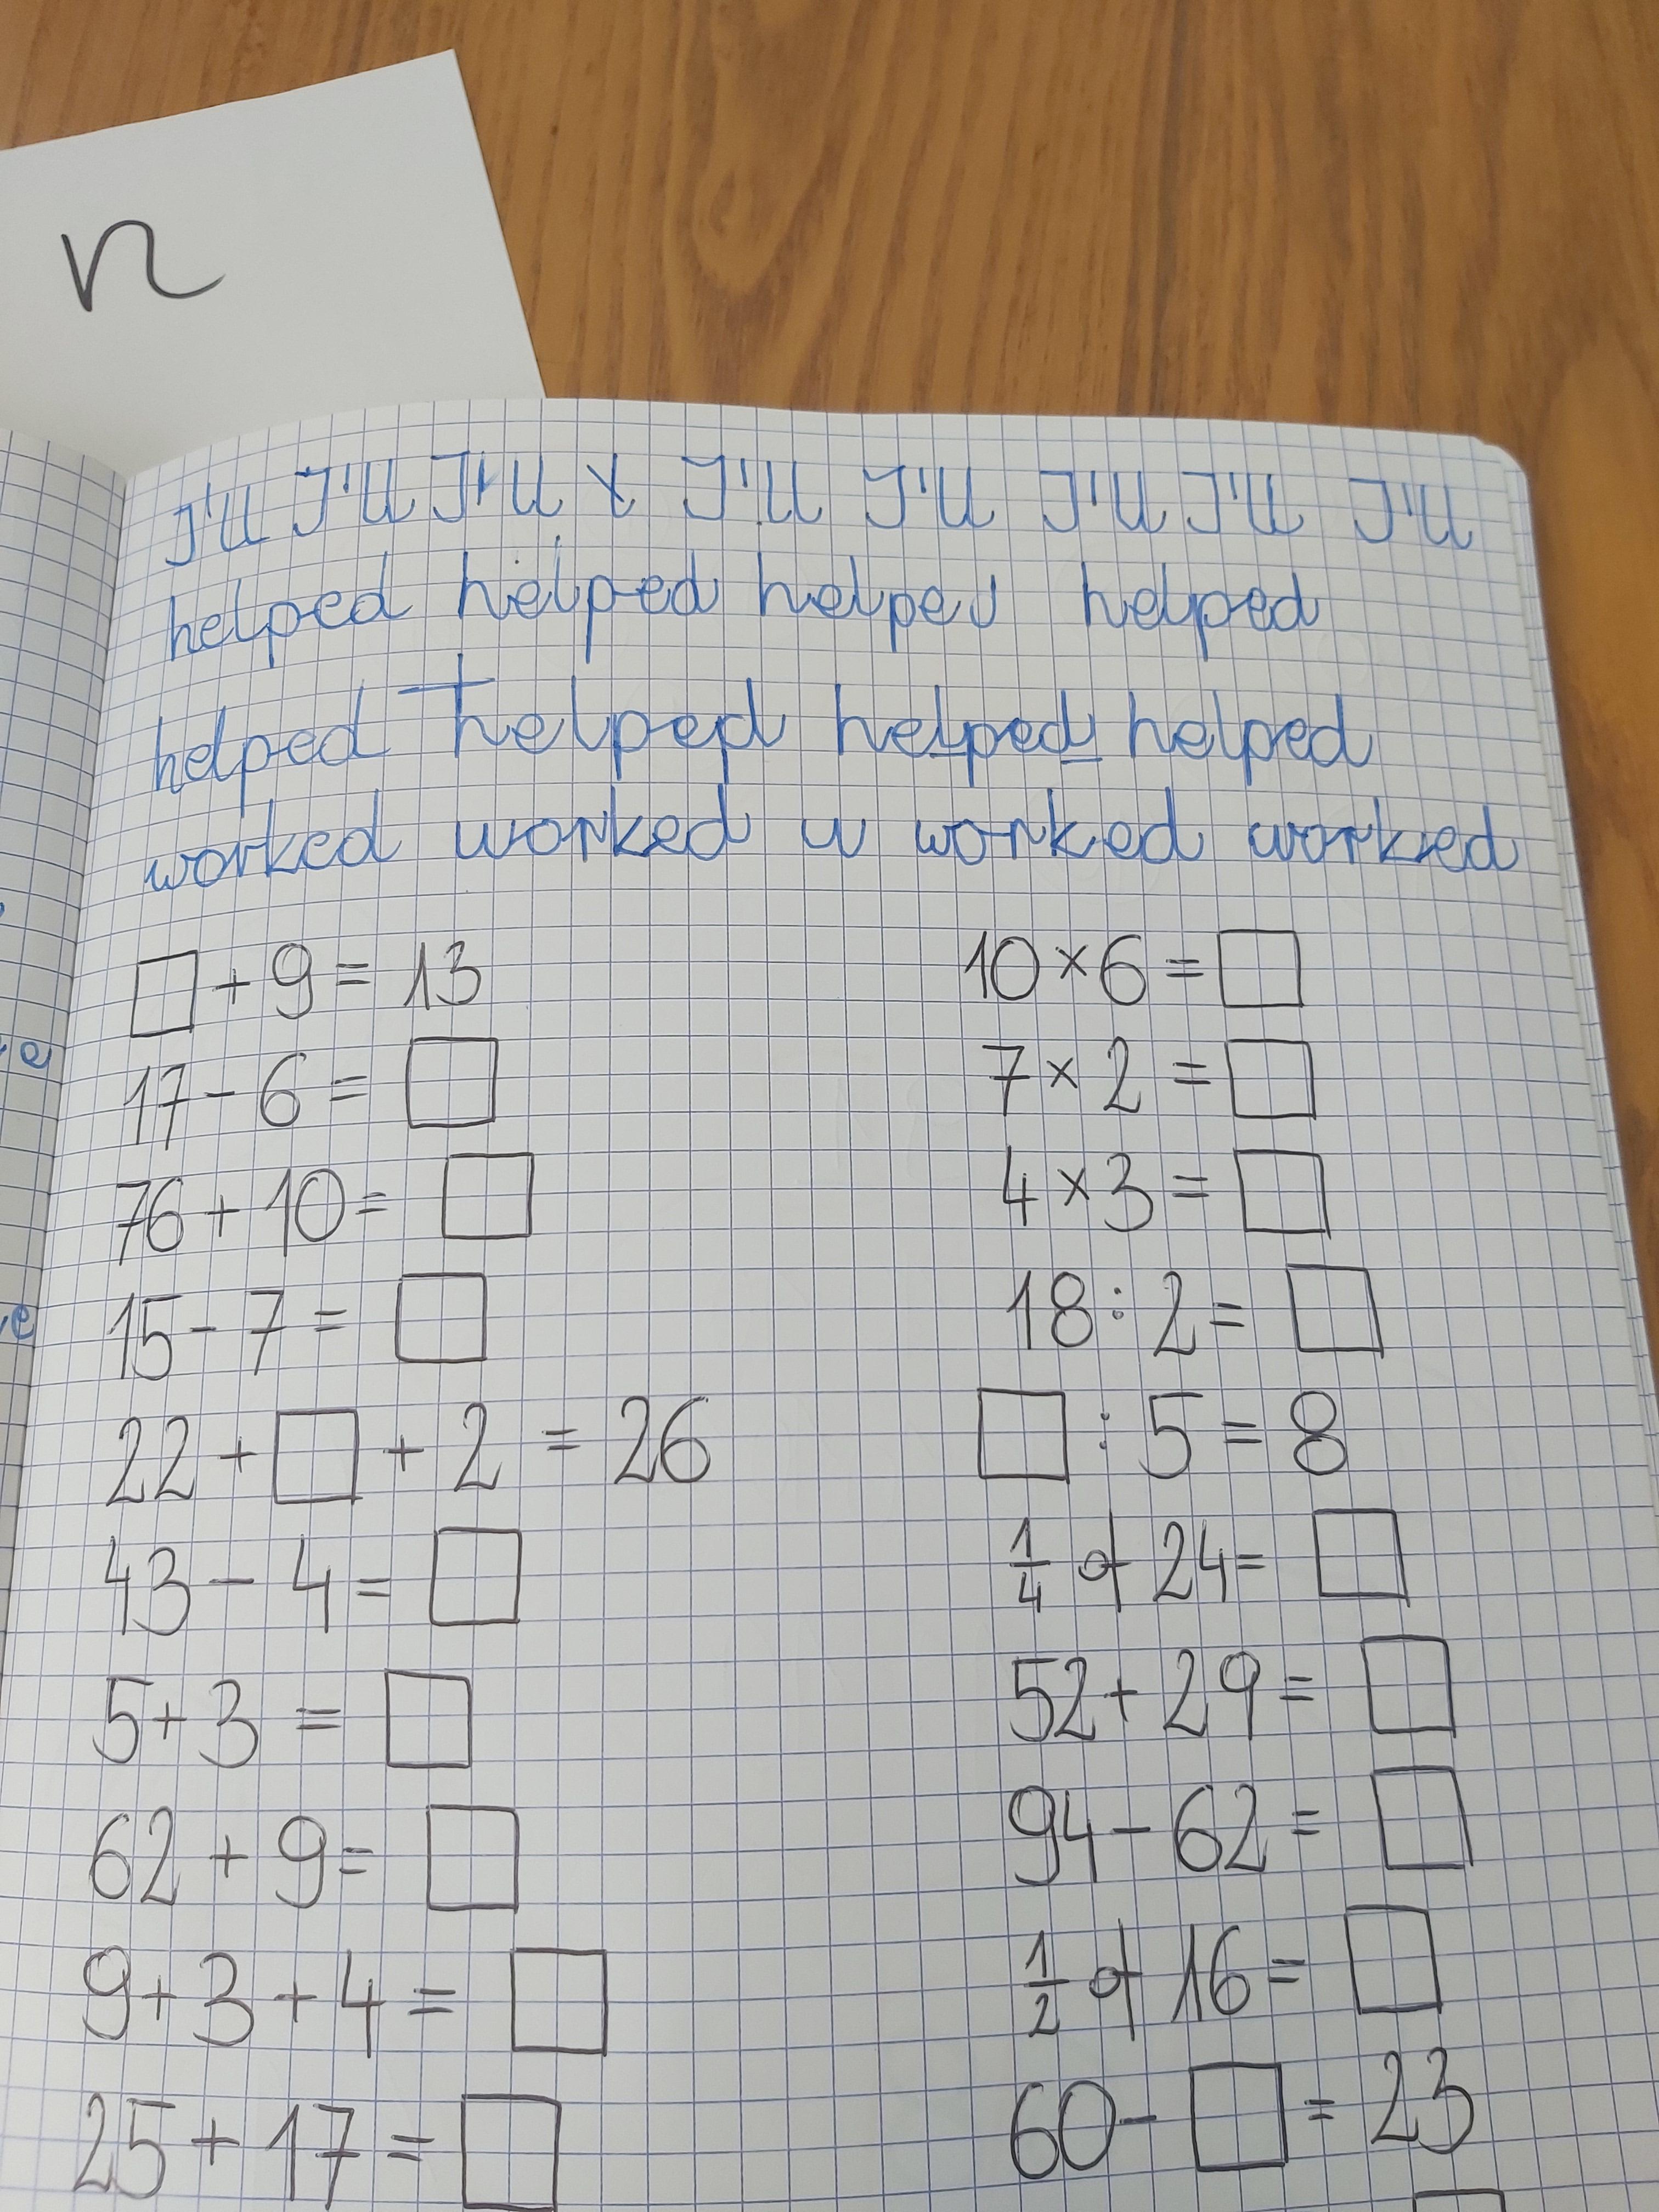 n
helped helped helped
helped helped helped helped
worked worked w worked worked
□ + 9 = 13
17 - 6 = □
76 + 10 = □
15 - 7 = □
22 + □ + 2 = 26
43 - 4 = □
5 + 3 = □
62 + 9 = □
9 + 3 + 4 = □
25 + 17 = □
10 × 6 = □
7 × 2 = □
4 × 3 = □
18 : 2 = □
□ : 5 = 8
1/4 of 24 = □
52 + 29 = □
94 - 62 = □
1/2 of 16 = □
60 - □ = 23